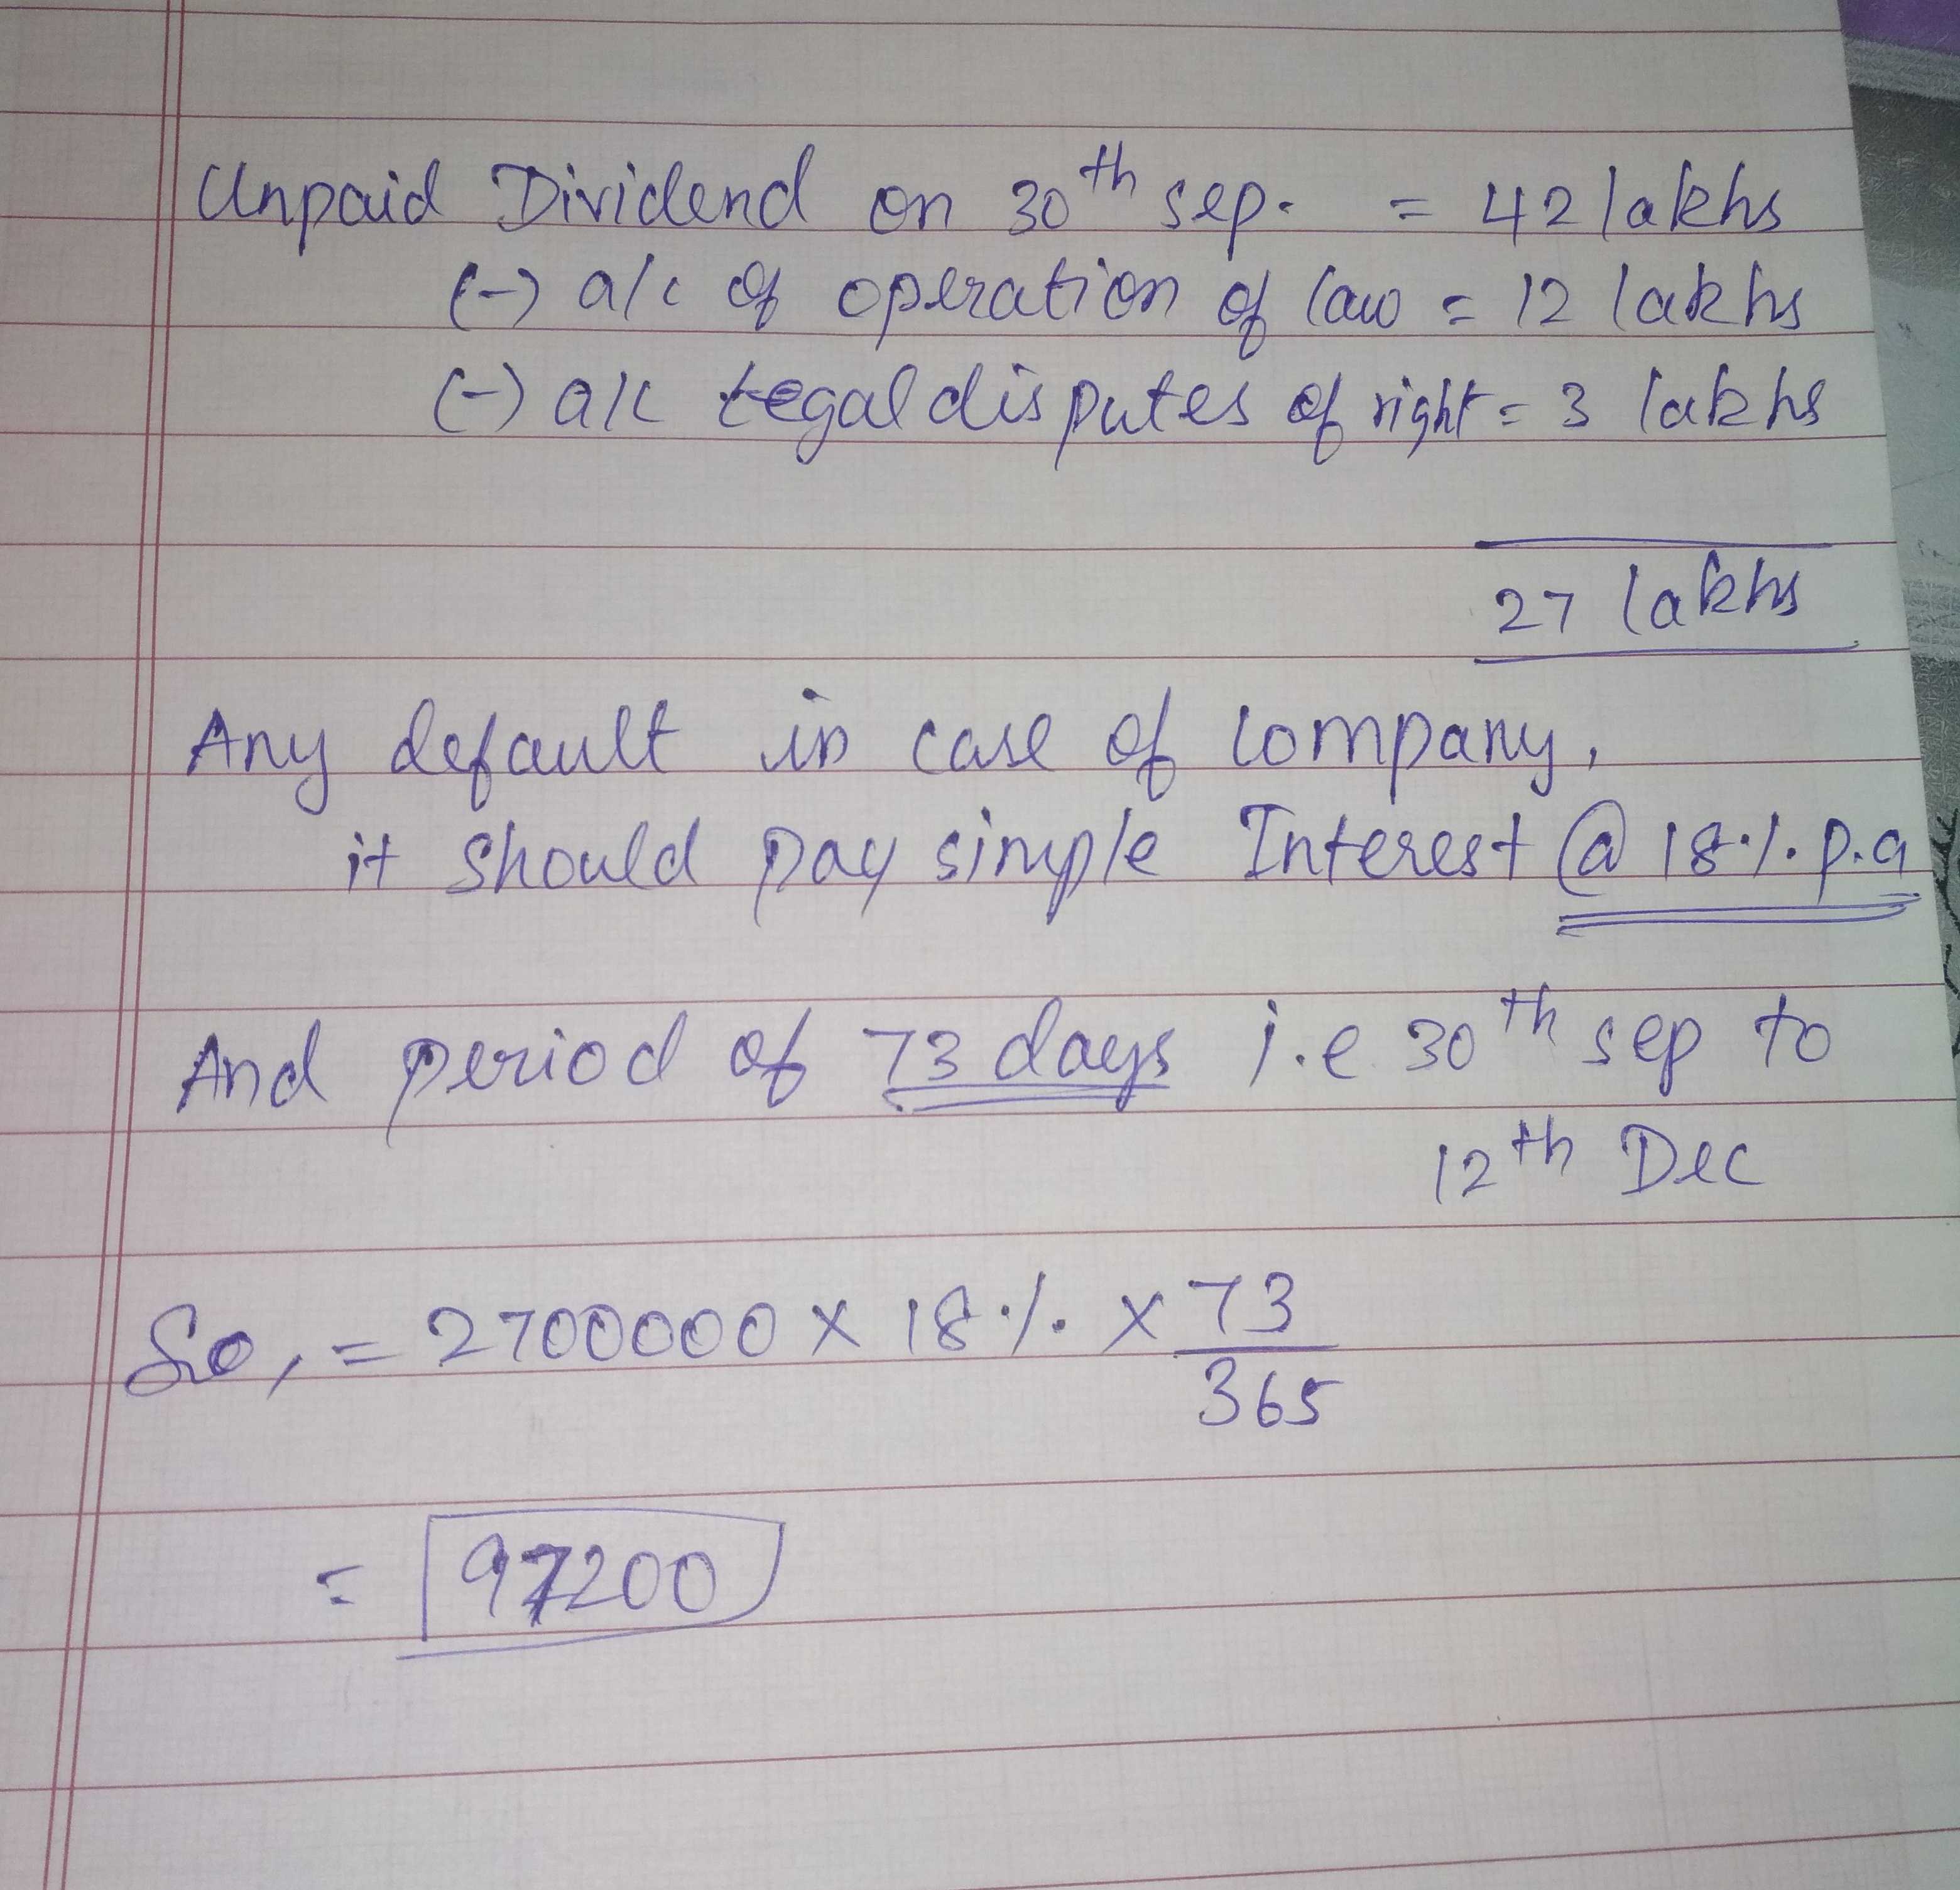 Unpaid Dividend on 30th sep. = 42 lakhs
(-) a/c of operation of law = 12 lakhs
(-) a/c legal disputes of right = 3 lakhs
27 lakhs
Any default in case of company,
it should pay simple Interest @ 18%. p.a
And period of 73 days i.e 30th sep to
12th Dec
So, = 2700000 x 18%. x 73/365
= 97200